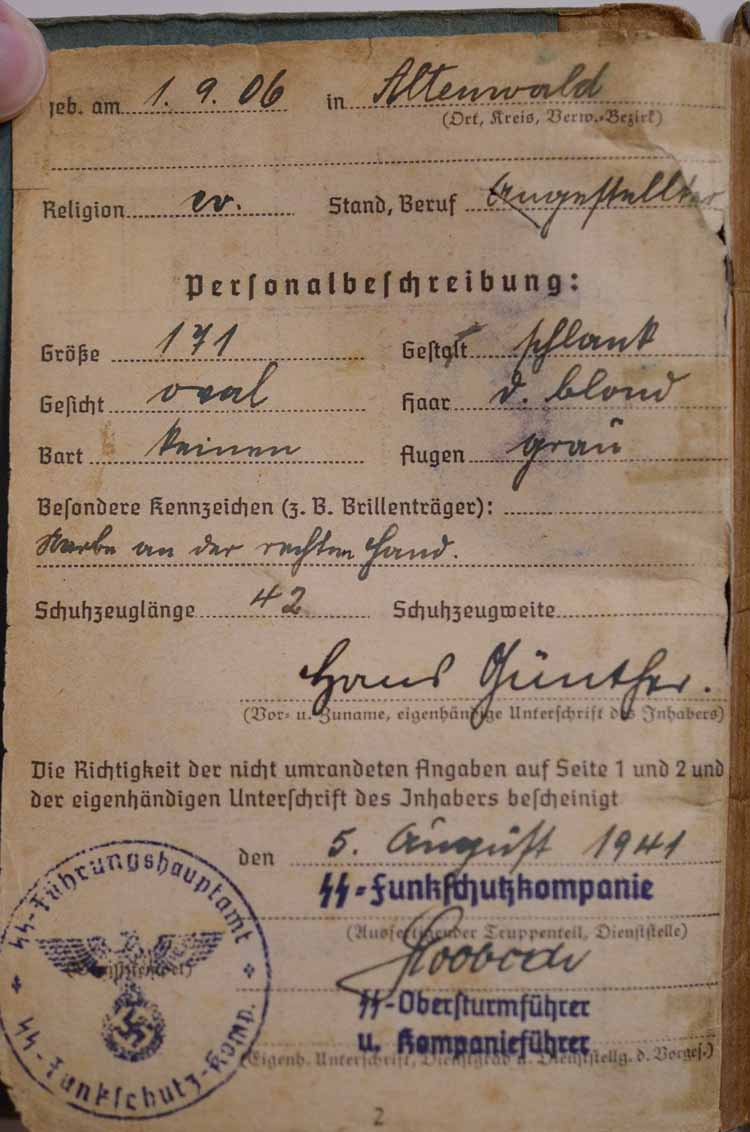 geb. am 1. 9. 06 in Altenwald
(Ort, Kreis, Verw.-Bezirk)
Religion ev. Stand, Beruf Angestellter
Personalbeschreibung:
Größe 171 Gestalt schlank
Gesicht oval Haar d. blond
Bart keinen Augen grau
Besondere Kennzeichen (z. B. Brillenträger):
Narbe an der rechten Hand.
Schuhzeuglänge 42 Schuhzeugweite
Hans Günther.
(Vor- u. Zuname, eigenhändige Unterschrift des Inhabers)
Die Richtigkeit der nicht umrandeten Angaben auf Seite 1 und 2 und
der eigenhändigen Unterschrift des Inhabers bescheinigt
den 5. August 1941
SS-Funkschutzkompanie
(Ausfertigender Truppenteil, Dienststelle)
SS-Führungshauptamt
(Dienststempel)
SS-Funkschutz-Komp.
SS-Obersturmführer
u. Kompanieführer
(Eigenh. Unterschrift, Dienstgrad u. Dienststellg. d. Vorges.)
2